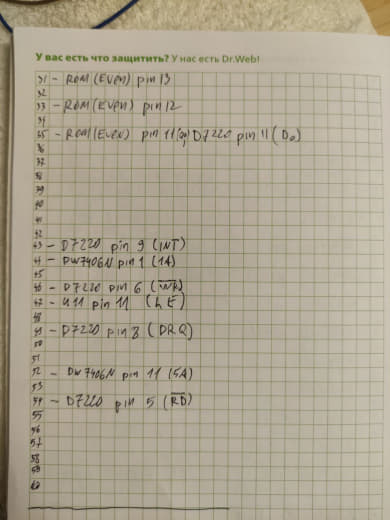 У вас есть что защитить? У нас есть Dr.Web!
31 - ROM (EVEN) pin 13
32
33 - ROM (EVEN) pin 12
34
35 - ROM (EVEN) pin 11 D7220 pin 11 (D0)
36
37
38
39
40
41
42
43 - D7220 pin 9 (INT)
44 - DW7406N pin 1 (1A)
45
46 - D7220 pin 6 (W̅R̅)
47 - U11 pin 11 (LE)
48
49 - D7220 pin 8 (DRQ)
50
51
52 - DW7406N pin 11 (5A)
53
54 - D7220 pin 5 (R̅D̅)
55
56
57
58
59
60